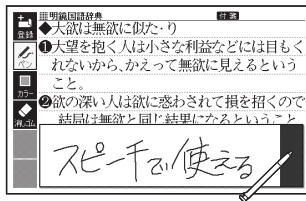 登録
ペン
カラー
消しゴム
明鏡国語辞典
付箋
◆大欲は無欲に似た・り
❶大望を抱く人は小さな利益などには目もく
れないから、かえって無欲に見えるという
こと。
❷欲の深い人は欲に惑わされて損を招くので
結局は無欲と同じ結果になるということ
スピーチで使える